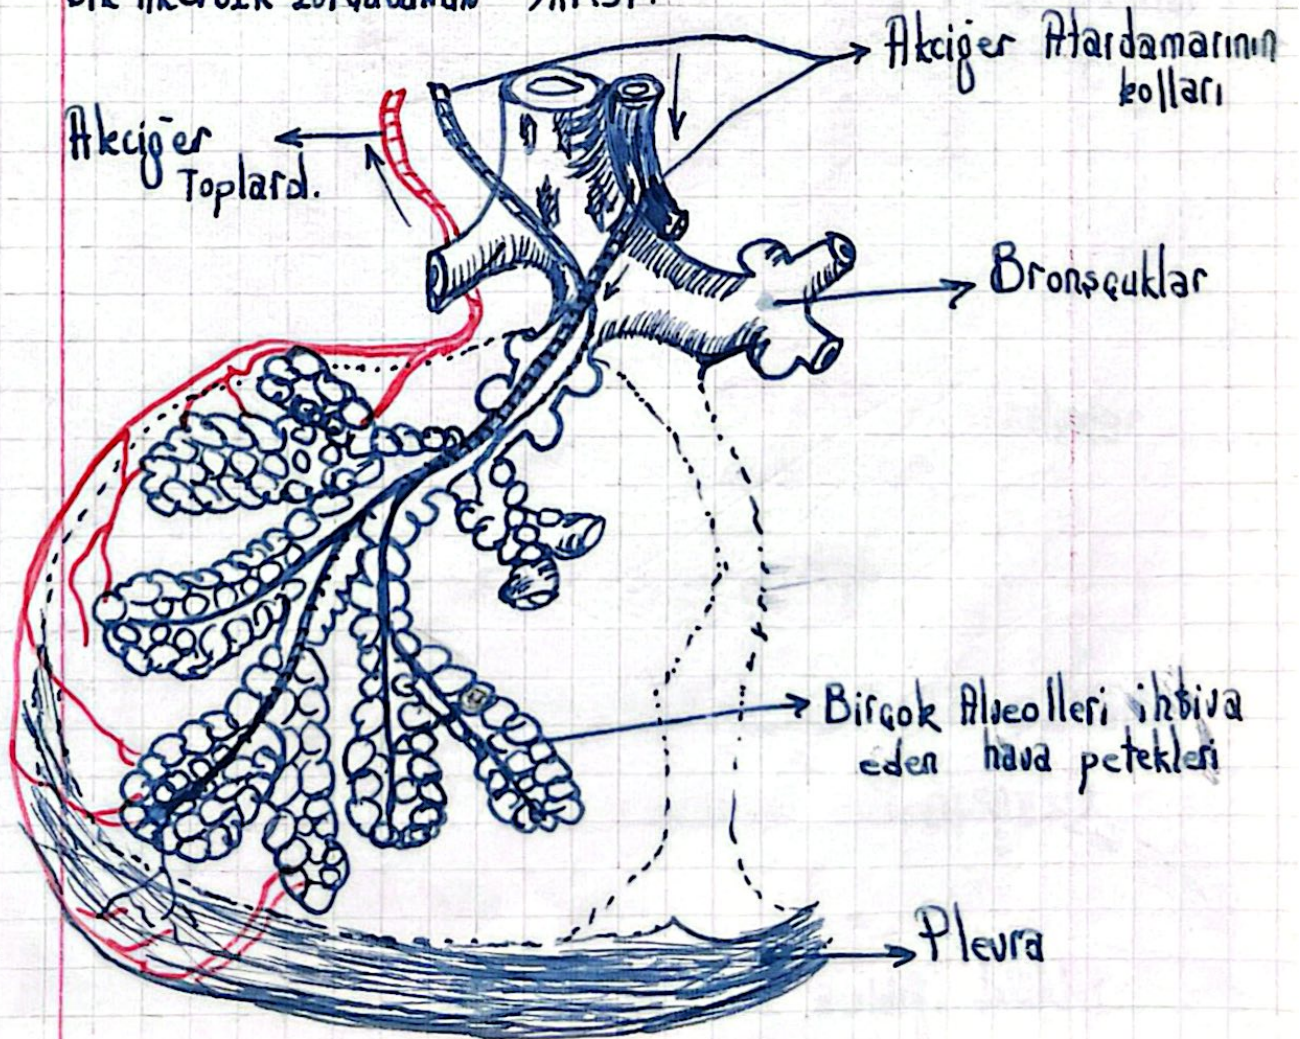 Akciğer Atardamarının
kolları
Akciğer
Toplard.
Bronşçuklar
Birçok Alveolleri ihtiva
eden hava petekleri
Plevra